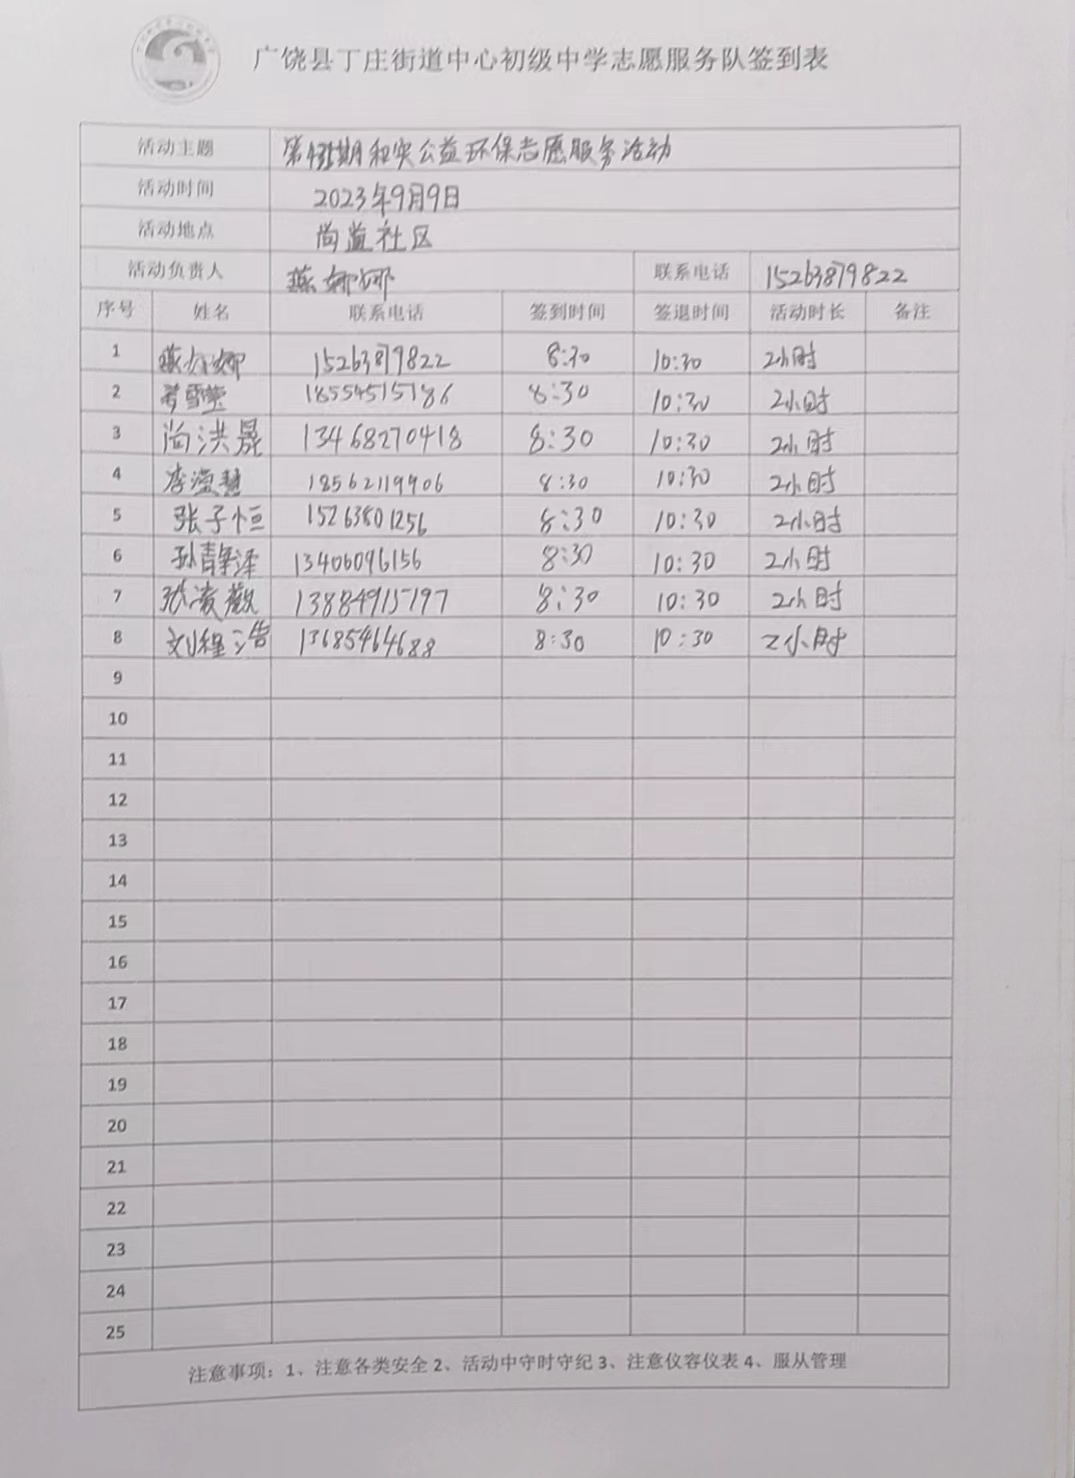 广饶县丁庄街道中心初级中学志愿服务队签到表
活动主题 期和实公益环保志愿服务活动
活动时间 2023年9月9日
活动地点 尚益社区
活动负责人 燕娜娜 联系电话 15263879822
序号 姓名 联系电话 签到时间 签退时间 活动时长 备注
1 燕娜娜 15263879822 8:30 10:30 2小时
2 18554515186 8:30 10:30 2小时
3 尚洪晟 13468270418 8:30 10:30 2小时
4 李滢慧 18562119906 8:30 10:30 2小时
5 张子恒 15263801256 8:30 10:30 2小时
6 孙静泽 13406096156 8:30 10:30 2小时
7 张凌 13884915197 8:30 10:30 2小时
8 刘程浩 13685464688 8:30 10:30 2小时
9
10
11
12
13
14
15
16
17
18
19
20
21
22
23
24
25
注意事项：1、注意各类安全 2、活动中守时守纪 3、注意仪容仪表 4、服从管理